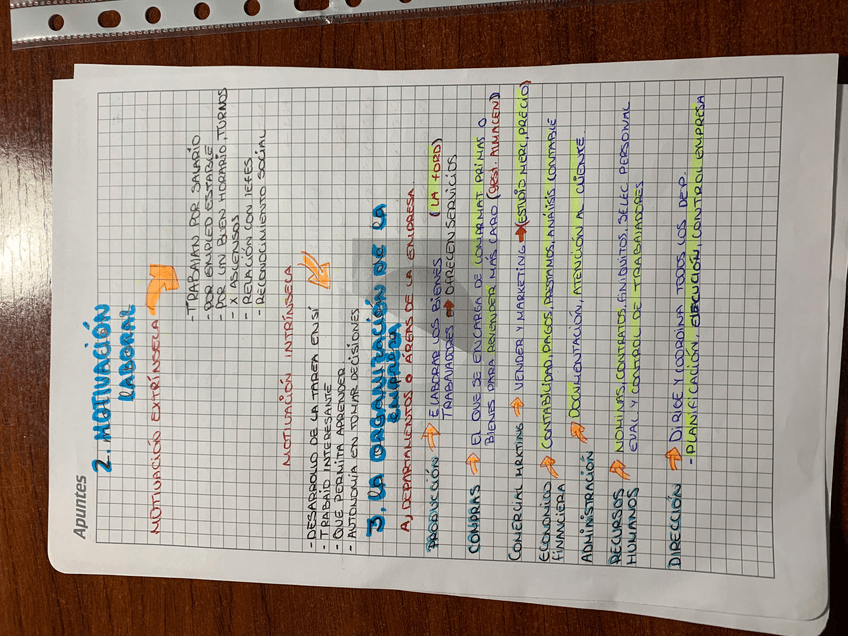 Apuntes
2. MOTIVACIÓN
LABORAL
MOTIVACIÓN EXTRÍNSECA
- TRABAJAN POR SALARIO
- POR EMPLEO ESTABLE
- POR UN BUEN HORARIO, TURNOS
- X ASCENSOS
- RELACIÓN CON JEFES
- RECONOCIMIENTO SOCIAL
MOTIVACIÓN INTRÍNSECA
- DESARROLLO DE LA TAREA EN SÍ
- TRABAJO INTERESANTE
- QUE PERMITA APRENDER
- AUTONOMÍA EN TOMAR DECISIONES
3. LA ORGANIZACIÓN DE LA
EMPRESA
A) DEPARTAMENTOS O ÁREAS DE LA EMPRESA
PRODUCCIÓN → ELABORAR LOS BIENES (LA FORD)
TRABAJADORES → OFRECEN SERVICIOS
COMPRAS → EL QUE SE ENCARGA DE COMPRAR MAT PRIMAS O
BIENES PARA REVENDER MÁS CARO (GEST. ALMACEN)
COMERCIAL MRKTING → VENDER Y MARKETING → (ESTUDIO MERC, PRECIO)
ECONOMICO → CONTABILIDAD, PAGOS, PRESTAMOS, ANÁISIS CONTABLE
FINANCIERA
ADMINISTRACIÓN → DOCUMENTACIÓN, ATENCIÓN AL CLIENTE
RECURSOS → NOMINAS, CONTRATOS, FINIQUITOS, SELEC PERSONAL
HUMANOS EVAL Y CONTROL DE TRABAJADORES
DIRECCIÓN → DIRIGE Y COORDINA TODOS LOS DEP.
- PLANIFICACIÓN, EJECUCIÓN, CONTROL EMPRESA